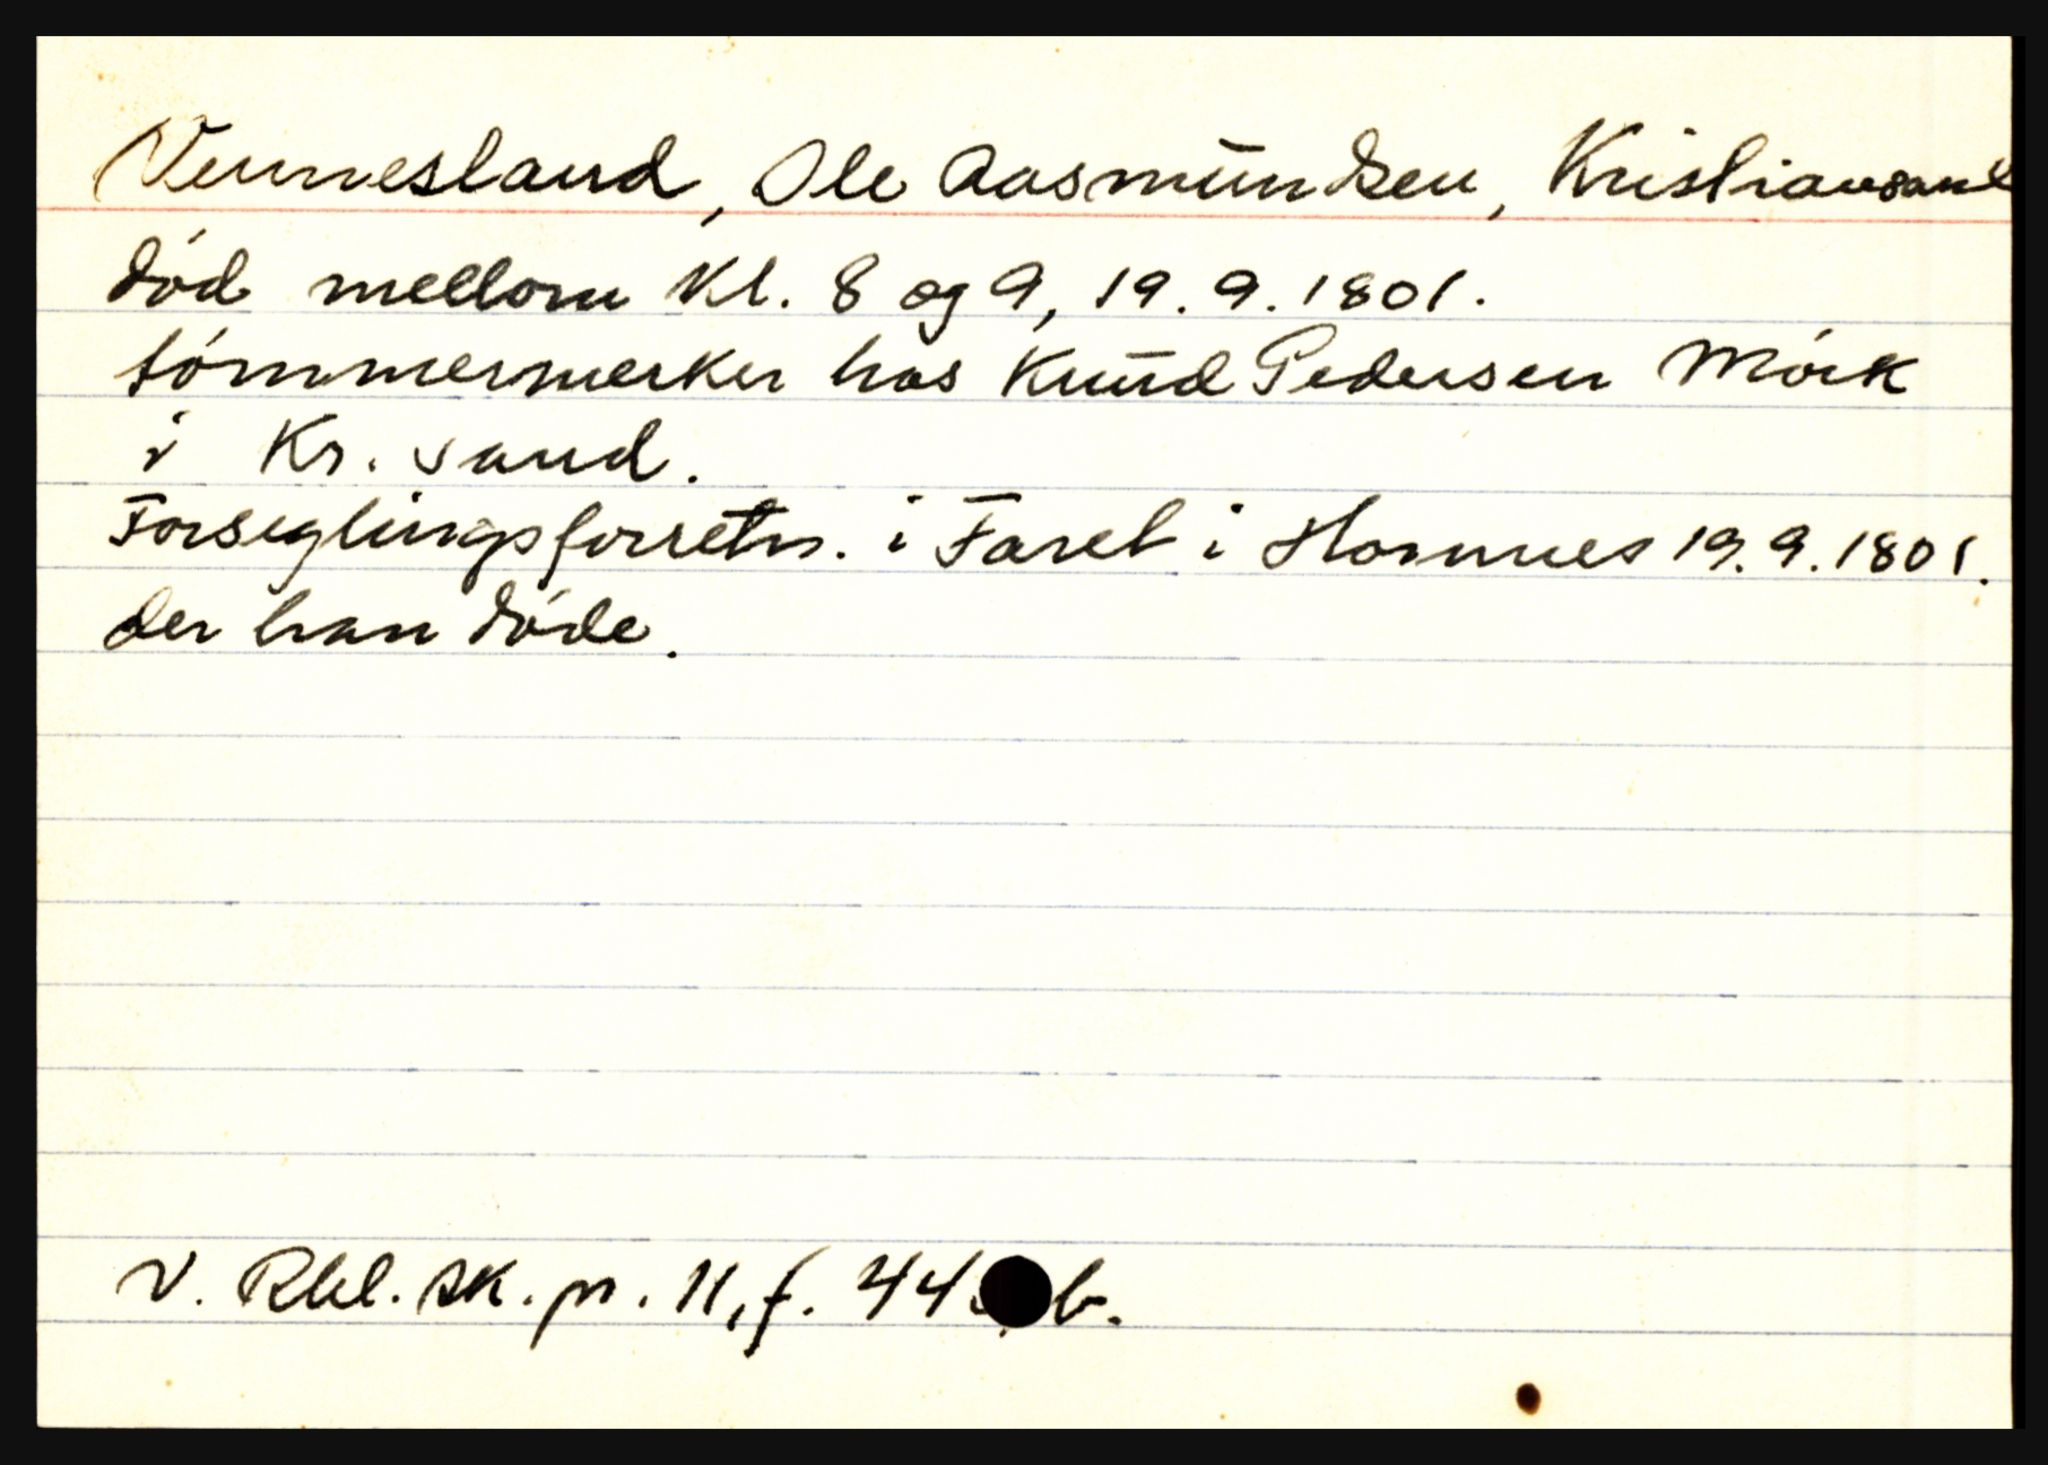 Vennesland, Ole Aasmundsen, Kristiansand
død mellom kl. 8 og 9, 19. 9. 1801.
tømmermerker hos Knud Pedersen Mörk
i Kr. sand.
Forseglingsforretn. i Faret i Homnes 19. 9. 1801.
der han døde.
V. Rbl. sk. pr. 11, f. 44 b.